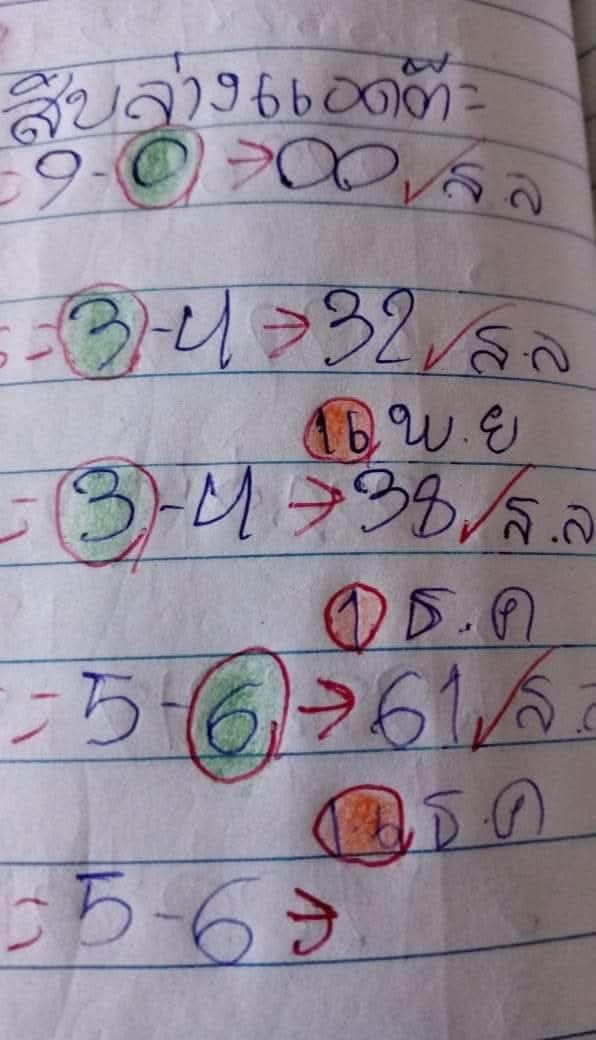 สิบล่างแอดติ๊ะ
= 9-0 → 00 ✓ ส.ล
= 3-4 → 32 ✓ ส.ล
16 พ.ย
= 3-4 → 38 ✓ ส.ล
1 ธ.ค
= 5-6 → 61 ✓ ส.ล
16 ธ.ค
= 5-6 →